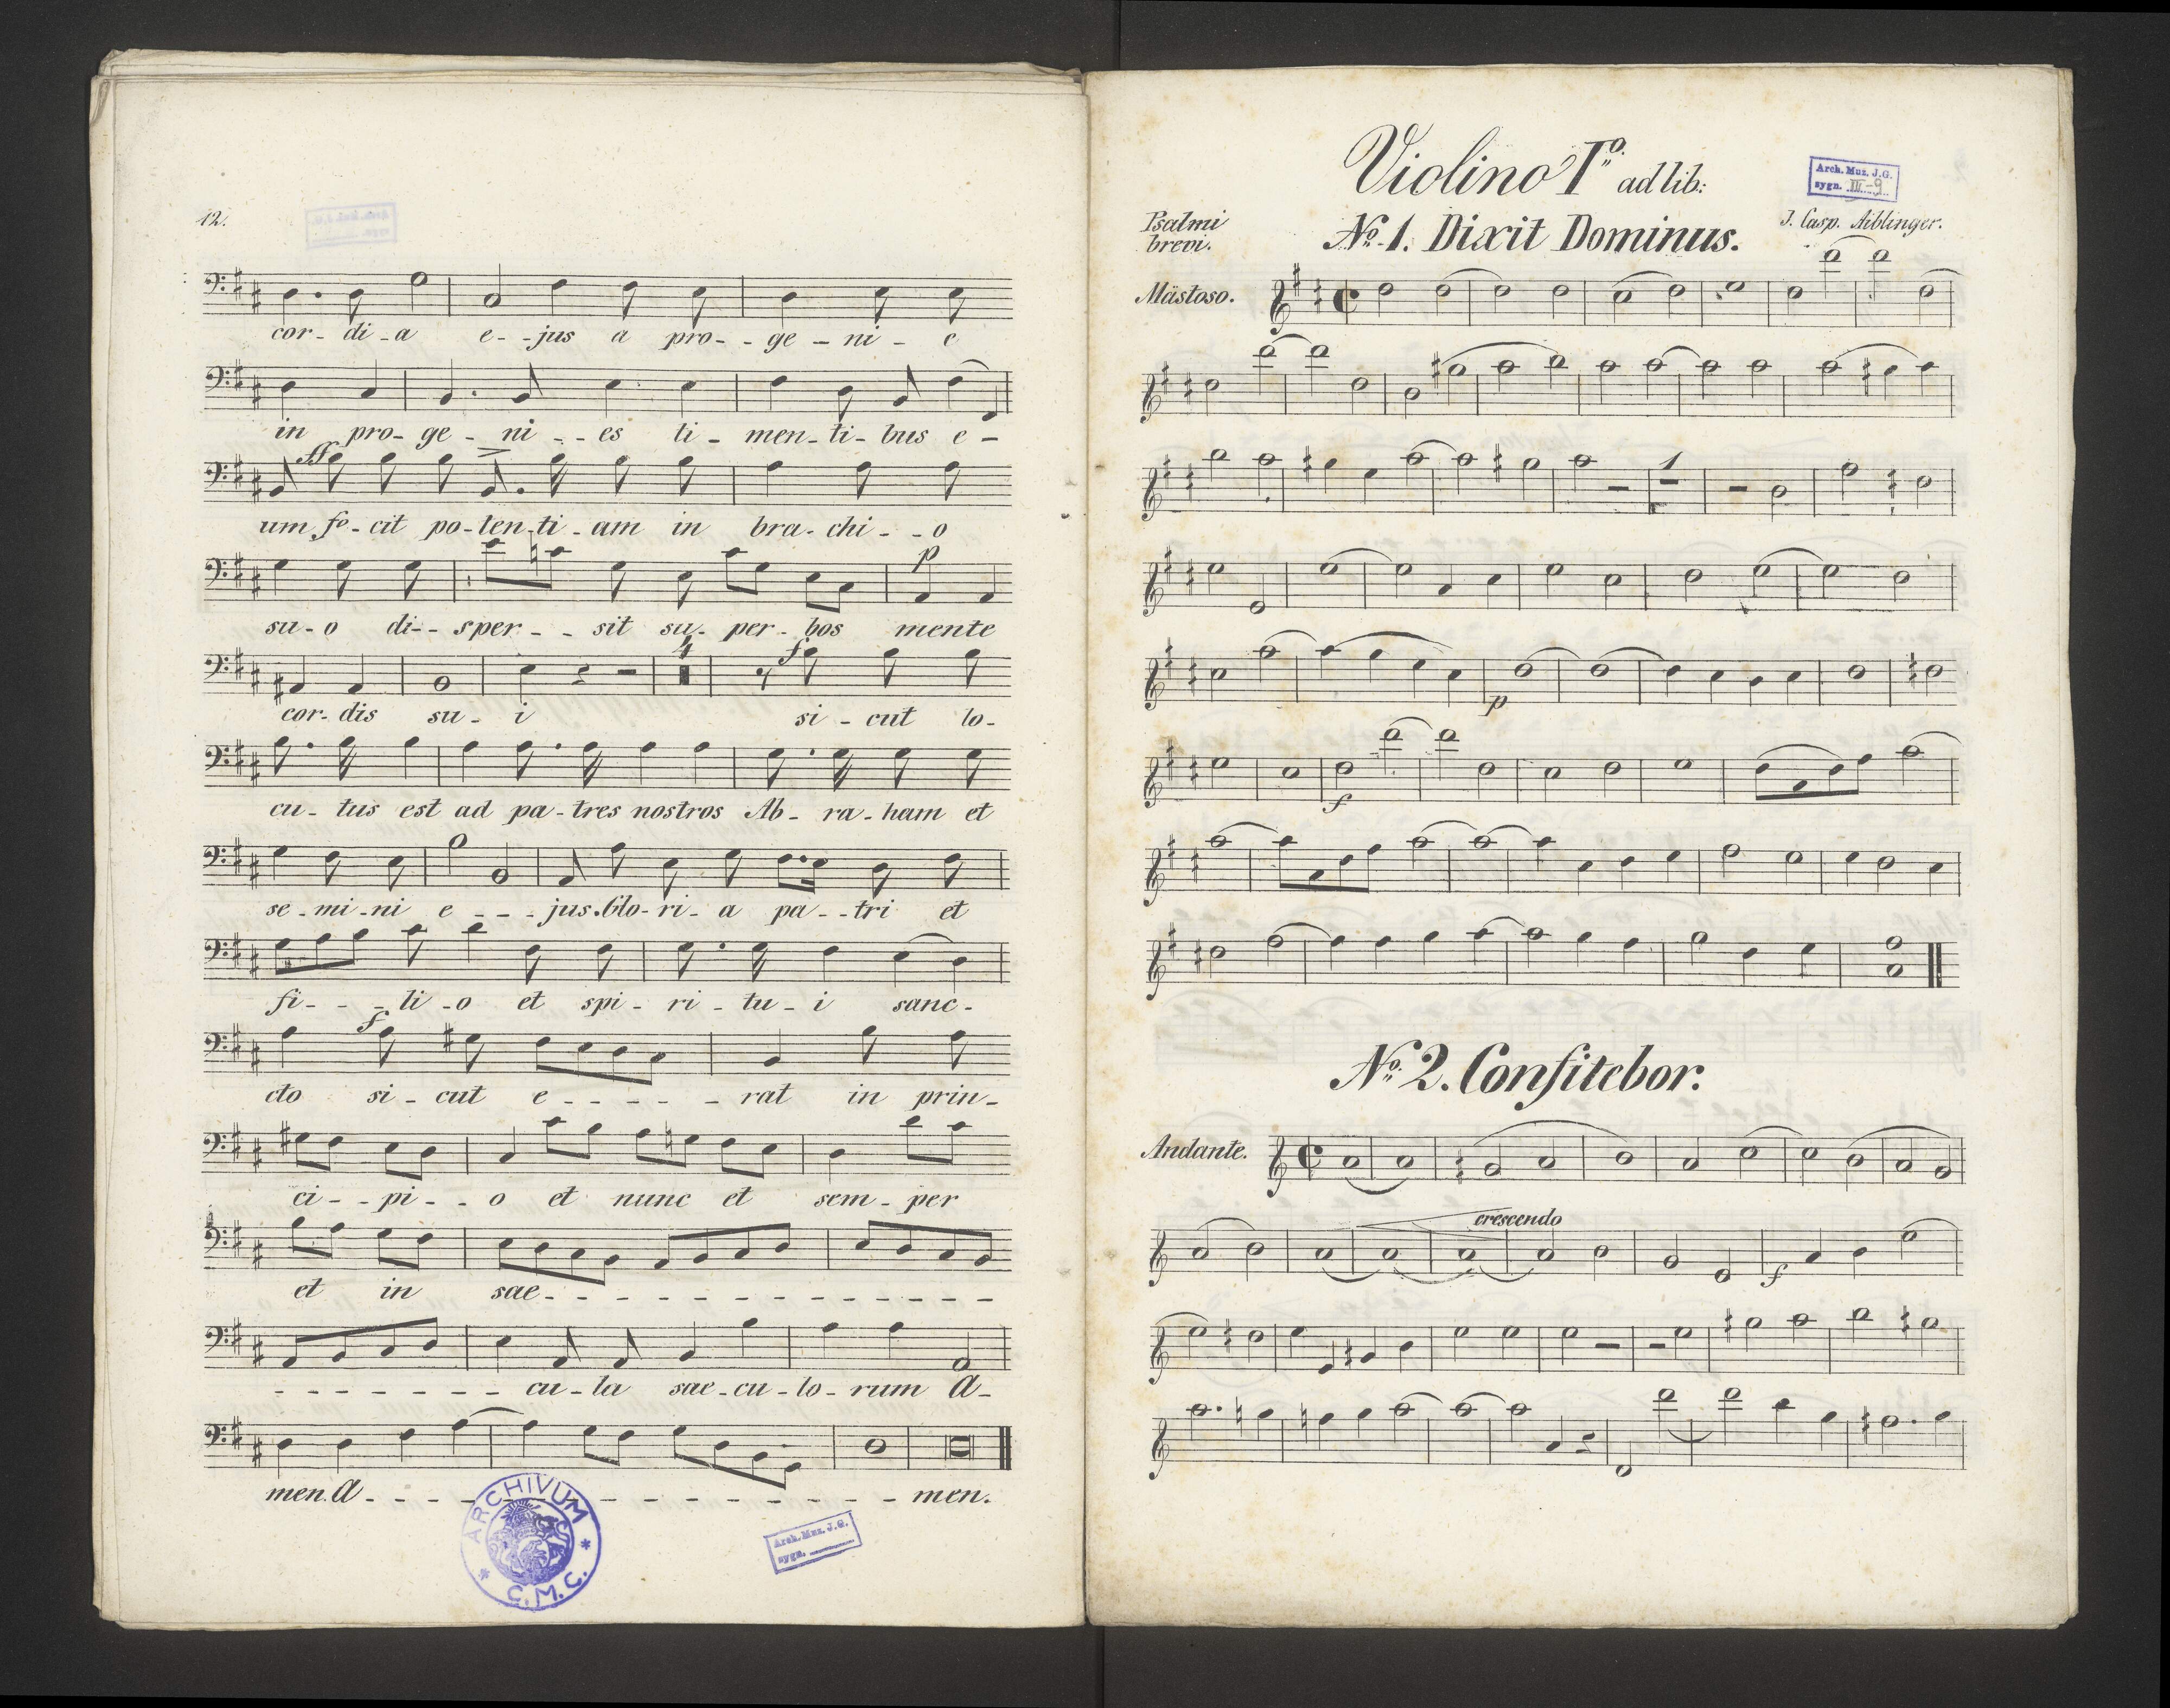 12.
cor - di - a e - - jus a pro - - ge - ni - e
in pro - ge - ni - - es ti - men - ti - bus e -
ff
um fe - cit po - ten - ti - am in bra - chi - - o
p
su - o di - - sper - - sit su - per - bos mente
4 f
cor - dis su - i si - cut lo -
cu - tus est ad pa - tres nostros Ab - ra - ham et
se - mi - ni e - - - jus. Glo - ri - a pa - - tri et
fi - - - li - o et spi - ri - tu - i sanc -
f
cto si - cut e - - - - - rat in prin -
ci - - pi - - o et nunc et sem - per
et in sae - - - - - - - - - - - -
- - - - - - - cu - la sae - cu - lo - rum A -
men. A - - - - - - - - - - - - - - - men.
ARCHIVUM
* C.M.C. *
Arch. Muz. J.G.
sygn.
Violino Iº ad lib:
Arch. Muz. J.G.
sygn. III-9
Psalmi
brevi.
Nº 1. Dixit Dominus.
J. Casp. Aiblinger.
Mästoso.
1
p
f
Nº 2. Confitebor.
Andante.
crescendo
f